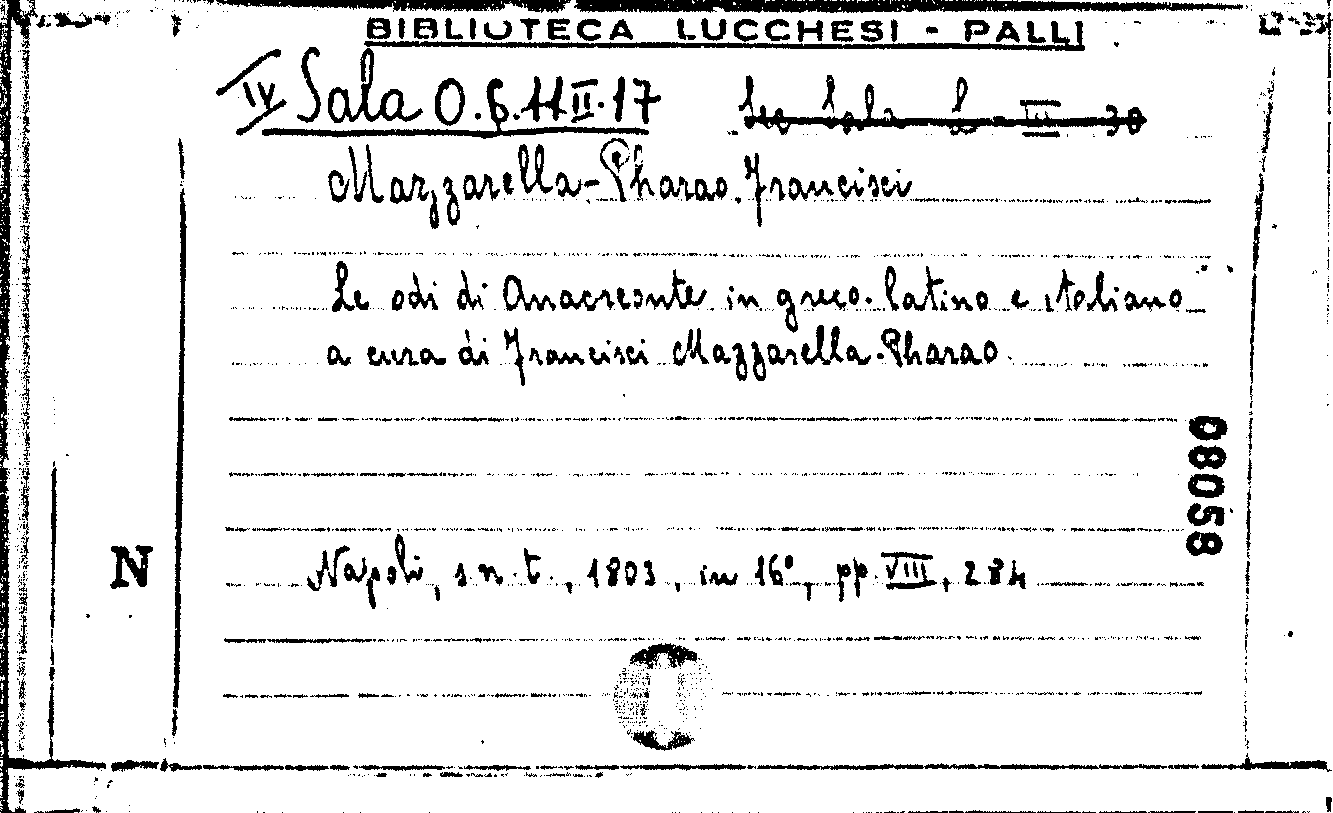 BIBLIOTECA LUCCHESI - PALLI
IV Sala O.6.44 II.17 Sec Sala L - III - 30
Mazzarella-Pharao. Francisci
Le odi di Anacreonte in greco. latino e italiano
a cura di Francisci Mazzarella-Pharao.
08058
N
Napoli, s.n.t., 1803, in 16°, pp. VIII, 284